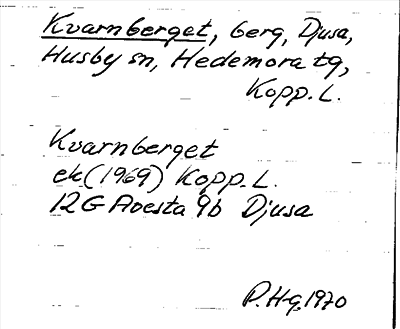 Kvarnberget, berg, Djusa,
Husby sn, Hedemora tg,
Kopp. L.
Kvarnberget
ek (1969) Kopp. L.
12G Avesta 9b Djusa
P.Hg, 1970